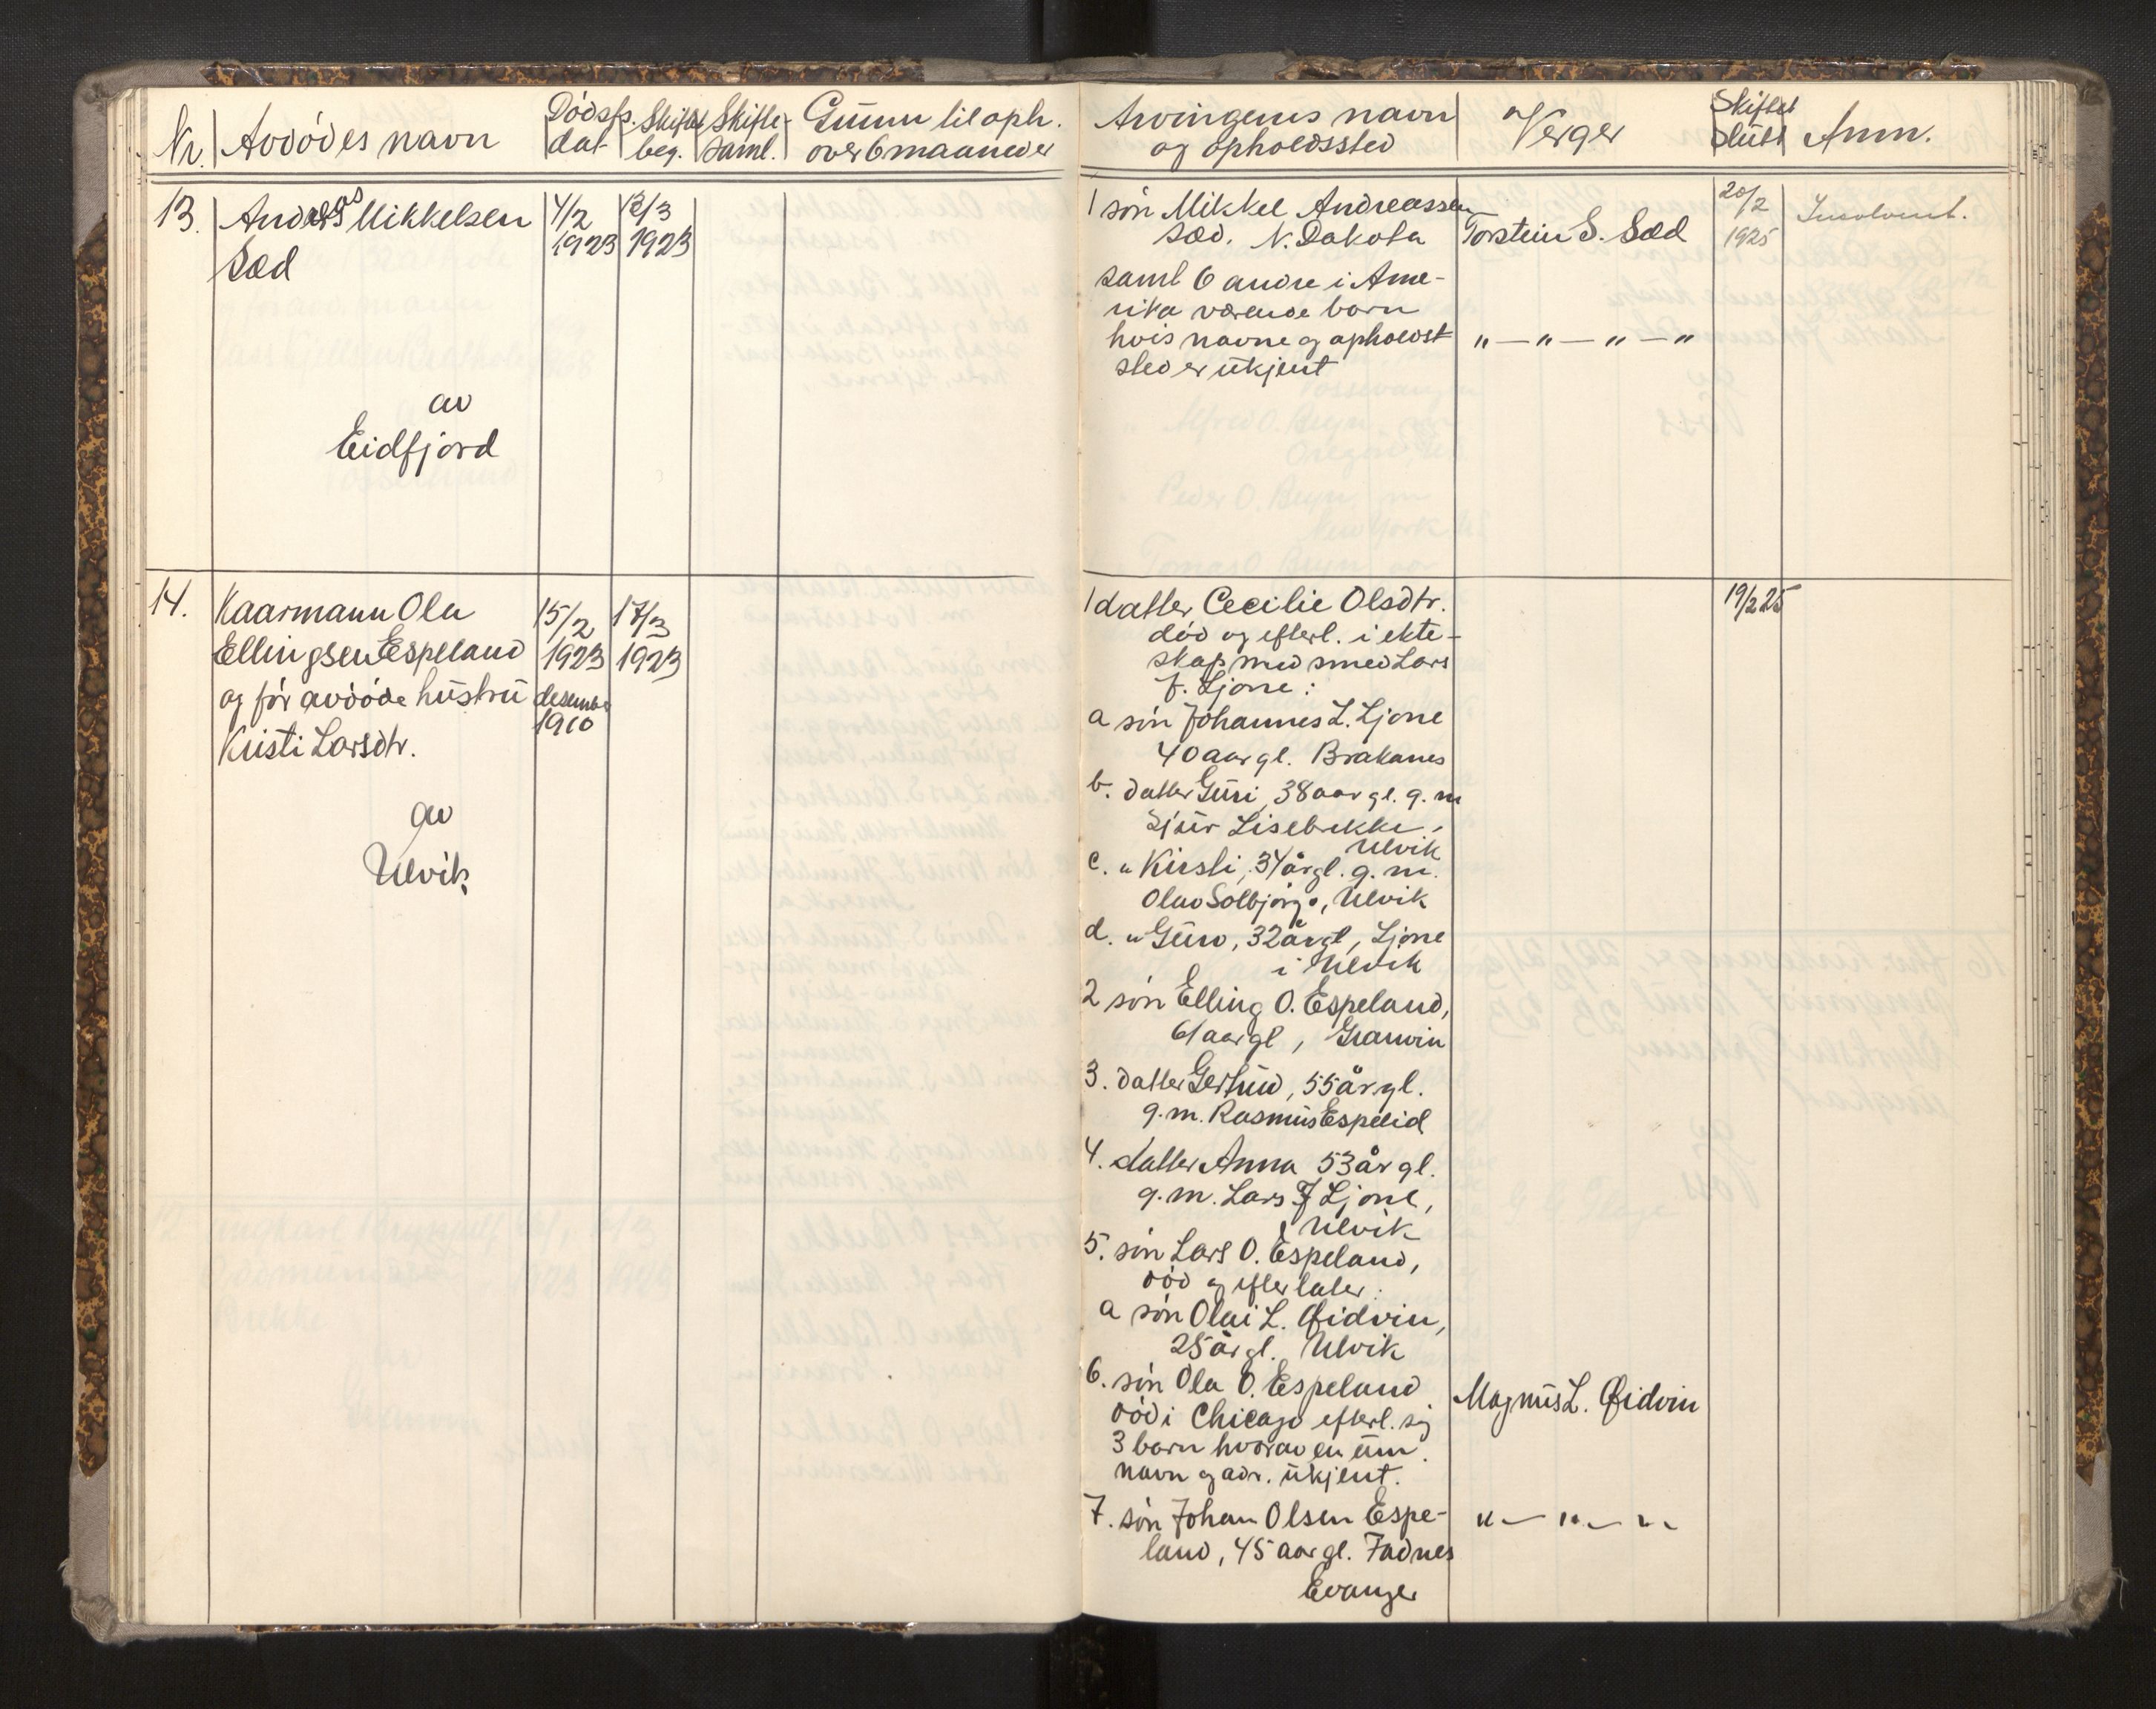 Nr. Avdødes navn Dødsfs. dat Skiftet beg. Skifte- saml. Grunn til oph. over 6 maaneder
13. Andreas Mikkelsen 4/2 12/3
Sæd 1923 1923
av
Eidfjord
14. Kaarmann Ola 15/2 17/3
Ellingsen Espeland 1923 1923
og før avdøde hustru desember
Kristi Larsdtr. 1910
av
Ulvik
Arvingens navn og opholdssted Verger Skiftet slutt Anm.
1 søn Mikkel Andreassen 20/2 Insolvent.
Sæd. N. Dakota Torstein S. Sæd 1925
saml 6 andre i Ame-
rika værende barn
hvis navne og opholdst „ — „ — „ — „
sted er ukjent
1 datter Cecilie Olsdtr. 19/2 25
død og efterl. i ekte-
skap med smed Lars
J. Ljone:
a søn Johannes L. Ljone
40 aar gl. Brakanes
b. datter Guri, 38 aar gl. g. m
Sjur Lisebrekke,
Ulvik
c. „ Kirsti, 34 år gl. g. m.
Olav Solbjørg, Ulvik
d. „ Guro, 32 år gl, Ljone
i Ulvik
2 søn Elling O. Espeland,
61 aar gl, Granvin
3. datter Gertrud, 55 år gl.
g. m. Rasmus Espelid
4. datter Anna 53 år gl.
g. m. Lars J Ljone,
Ulvik
5. søn Lars O. Espeland,
død og efterlater:
a søn Olai L. Øidvin,
25 år gl. Ulvik
6. søn Ola O. Espeland Magnus L. Øidvin
død i Chicago efterl. sig
3 barn hvorav en um.
navn og adr. ukjent.
7. søn Johan Olsen Espe- „ — „ — „
land, 45 aar gl. Fadnes
Evanger